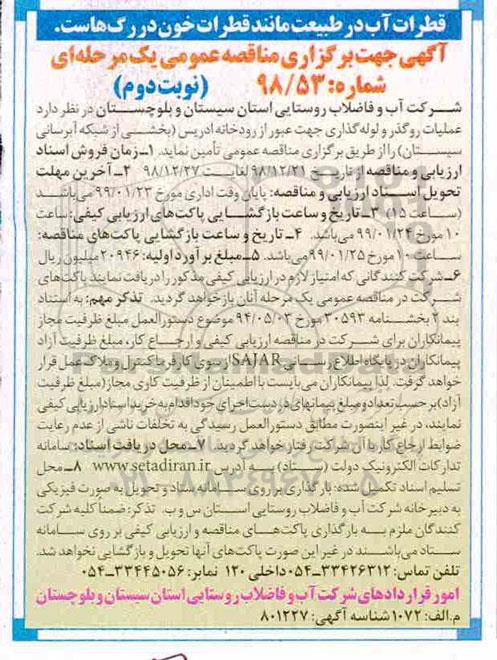 قطرات آب در طبیعت مانند قطرات خون در رگ هاست.
آگهی جهت برگزاری مناقصه عمومی یک مرحله‌ای
شماره: ۹۸/۵۳ (نوبت دوم)
شرکت آب و فاضلاب روستایی استان سیستان و بلوچستان در نظر دارد
عملیات روگذر و لوله گذاری جهت عبور از رودخانه ادریس (بخشی از شبکه آبرسانی
سیستان) را از طریق برگزاری مناقصه عمومی تأمین نماید. ۱ـ زمان فروش اسناد
ارزیابی و مناقصه از تاریخ ۹۸/۱۲/۲۱ لغایت ۹۸/۱۲/۲۷ ۲ـ آخرین مهلت
تحویل اسناد ارزیابی و مناقصه: پایان وقت اداری مورخ ۹۹/۰۱/۲۳ می‌باشد
(ساعت ۱۵) ۳ـ تاریخ و ساعت بازگشایی پاکت‌های ارزیابی کیفی: ساعت
۱۰ مورخ ۹۹/۰۱/۲۴ می‌باشد. ۴ـ تاریخ و ساعت بازگشایی پاکت‌های مناقصه:
ساعت ۱۰ مورخ ۹۹/۰۱/۲۵ می‌باشد. ۵ـ مبلغ برآورد اولیه: ۲۰۹۴۶ میلیون ریال
۶ـ شرکت کنندگانی که امتیاز لازم در ارزیابی کیفی مذکور را دریافت نمایند پاکت‌های
شرکت در مناقصه عمومی یک مرحله آنان باز خواهد گردید. تذکر مهم: به استناد
بند ۲ بخشنامه ۳۰۵۹۳ مورخ ۹۴/۰۵/۰۳ موضوع دستورالعمل مبلغ ظرفیت مجاز
پیمانکاران برای شرکت در مناقصه ارزیابی کیفی و ارجاع کار، مبلغ ظرفیت آزاد
پیمانکاران در پایگاه اطلاع رسانی SAJAR از سوی کارفرما کنترل و ملاک عمل قرار
خواهد گرفت. لذا پیمانکاران می‌بایست با اطمینان از ظرفیت کاری مجاز (مبلغ ظرفیت
آزاد) بر حسب تعداد و مبلغ پیمانهای در دست اجرای خود اقدام به خرید اسناد ارزیابی کیفی
نمایند، در غیر اینصورت مطابق دستورالعمل رسیدگی به تخلفات ناشی از عدم رعایت
ضوابط ارجاع کار با آن شرکت رفتار خواهد گردید. ۷ـ محل دریافت اسناد: سامانه
تدارکات الکترونیک دولت (ستاد) به آدرس www.setadiran.ir ۸ـ محل
تسلیم اسناد تکمیل شده: بارگذاری بر روی سامانه ستاد و تحویل به صورت فیزیکی
به دبیرخانه شرکت آب و فاضلاب روستایی استان س و ب. تذکر: ضمنا کلیه شرکت
کنندگان ملزم به بارگذاری پاکت‌های مناقصه و ارزیابی کیفی بر روی سامانه
ستاد می‌باشند در غیر این صورت پاکت‌های آنها تحویل و بازگشایی نخواهد شد.
تلفن تماس: ۳۳۴۲۶۳۱۲-۰۵۴ داخلی ۱۲۰ نمابر: ۳۳۴۴۵۰۵۶-۰۵۴
امور قراردادهای شرکت آب و فاضلاب روستایی استان سیستان و بلوچستان
م.الف: ۱۰۷۲ شناسه آگهی: ۸۰۱۲۲۷